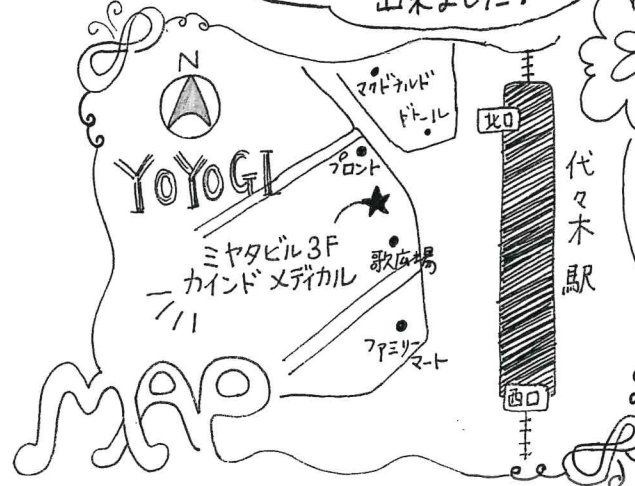 出来ました!
N
マクドナルド
ドトール
北口
YOYOGI
プロント
代々木駅
ミヤタビル3F
カインドメディカル
歌広場
ファミリーマート
西口
MAP